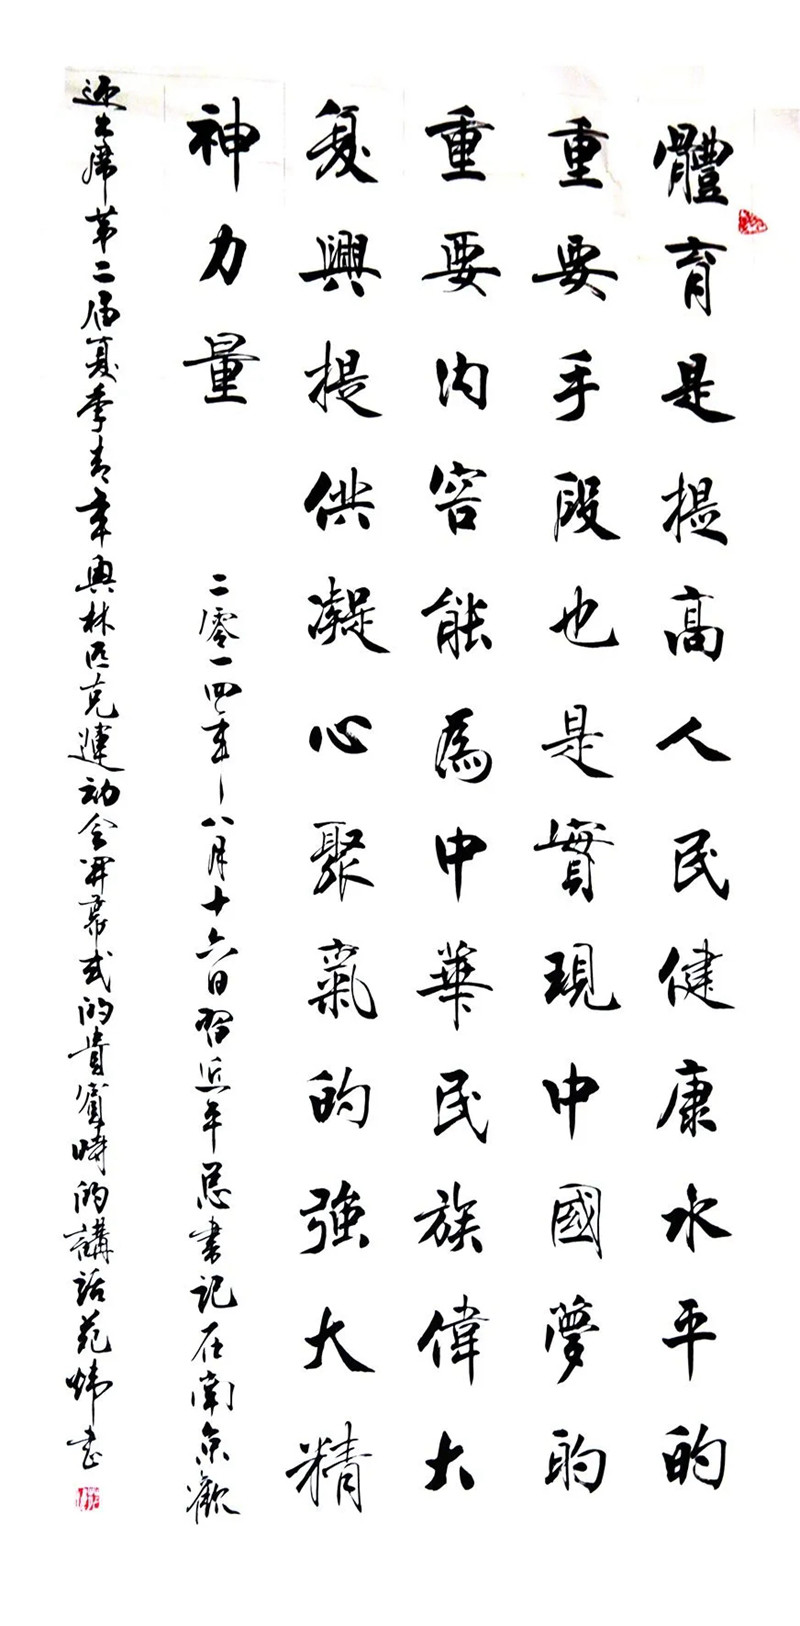 體育是提高人民健康水平的
重要手段也是實現中國夢的
重要內容能為中華民族偉大
复興提供凝心聚氣的強大精
神力量
二零一四年八月十六日習近平总書记在南京歡
迎出席第二届夏季青年奥林匹克運动会开幕式的貴賓時的講話范炜书